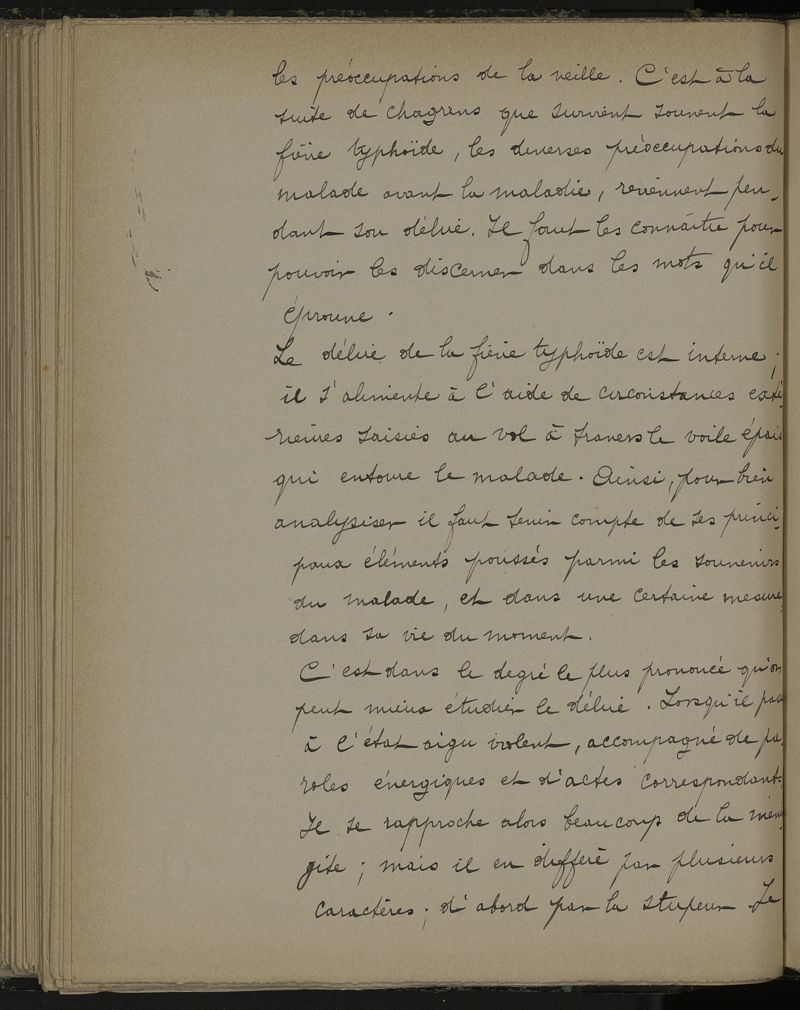 les préoccupations de la veille. C'est à la
suite de chagrins que survient souvent la
fièvre typhoïde, les diverses préoccupations du
malade avant la maladie, reviennent pen-
dant son délire. Il faut les connaître pour
pouvoir les discerner dans les mots qu'il
éprouve.
Le délire de la fièvre typhoïde est interne;
il s'alimente à l'aide de circonstances exté-
rieures saisies au vol à travers le voile épais
qui entoure le malade. Ainsi, pour bien
analysiser il faut tenir compte de ses princi-
paux éléments poussés parmi les souvenirs
du malade, et dans une certaine mesure,
dans sa vie du moment.
C'est dans le degré le plus prononcé qu'on
peut mieux étudier le délire. Lorsqu'il passe
à l'état aigu violent, accompagné de pa-
roles énergiques et d'actes correspondants.
Il se rapproche alors beaucoup de la ménin
gite; mais il en diffère par plusieurs
caractères; d'abord par la stupeur. Le